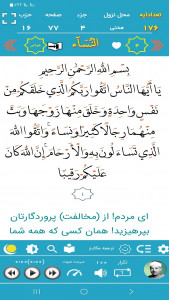 تعدادآیه محل نزول جزء صفحه حزب
۱۷۶ مدنی ۴ ۷۷ ۱۶
النِّسَاء
بِسْمِ اللَّهِ الرَّحْمَنِ الرَّحِيمِ
يَا أَيُّهَا النَّاسُ اتَّقُوا رَبَّكُمُ الَّذِي خَلَقَكُمْ مِنْ
نَفْسٍ وَاحِدَةٍ وَخَلَقَ مِنْهَا زَوْجَهَا وَبَثَّ
مِنْهُمَا رِجَالًا كَثِيرًا وَنِسَاءً ۚ وَاتَّقُوا اللَّهَ
الَّذِي تَسَاءَلُونَ بِهِ وَالْأَرْحَامَ ۚ إِنَّ اللَّهَ كَانَ
عَلَيْكُمْ رَقِيبًا
ای مردم! از (مخالفت) پروردگارتان
بپرهیزید! همان کسی که همه شما
ترجمه مکارم
تکرار